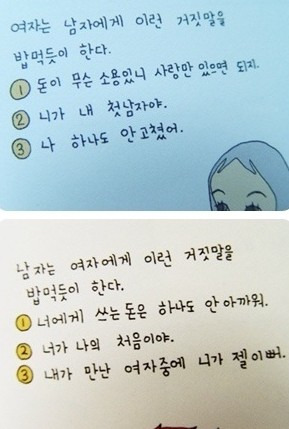 여자는 남자에게 이런 거짓말을
밥먹듯이 한다.
① 돈이 무슨 소용있니 사랑만 있으면 되지.
② 니가 내 첫남자야.
③ 나 하나도 안고쳤어.
남자는 여자에게 이런 거짓말을
밥먹듯이 한다.
① 너에게 쓰는돈은 하나도 안아까워.
② 너가 나의 처음이야.
③ 내가 만난 여자중에 니가 젤이뻐.